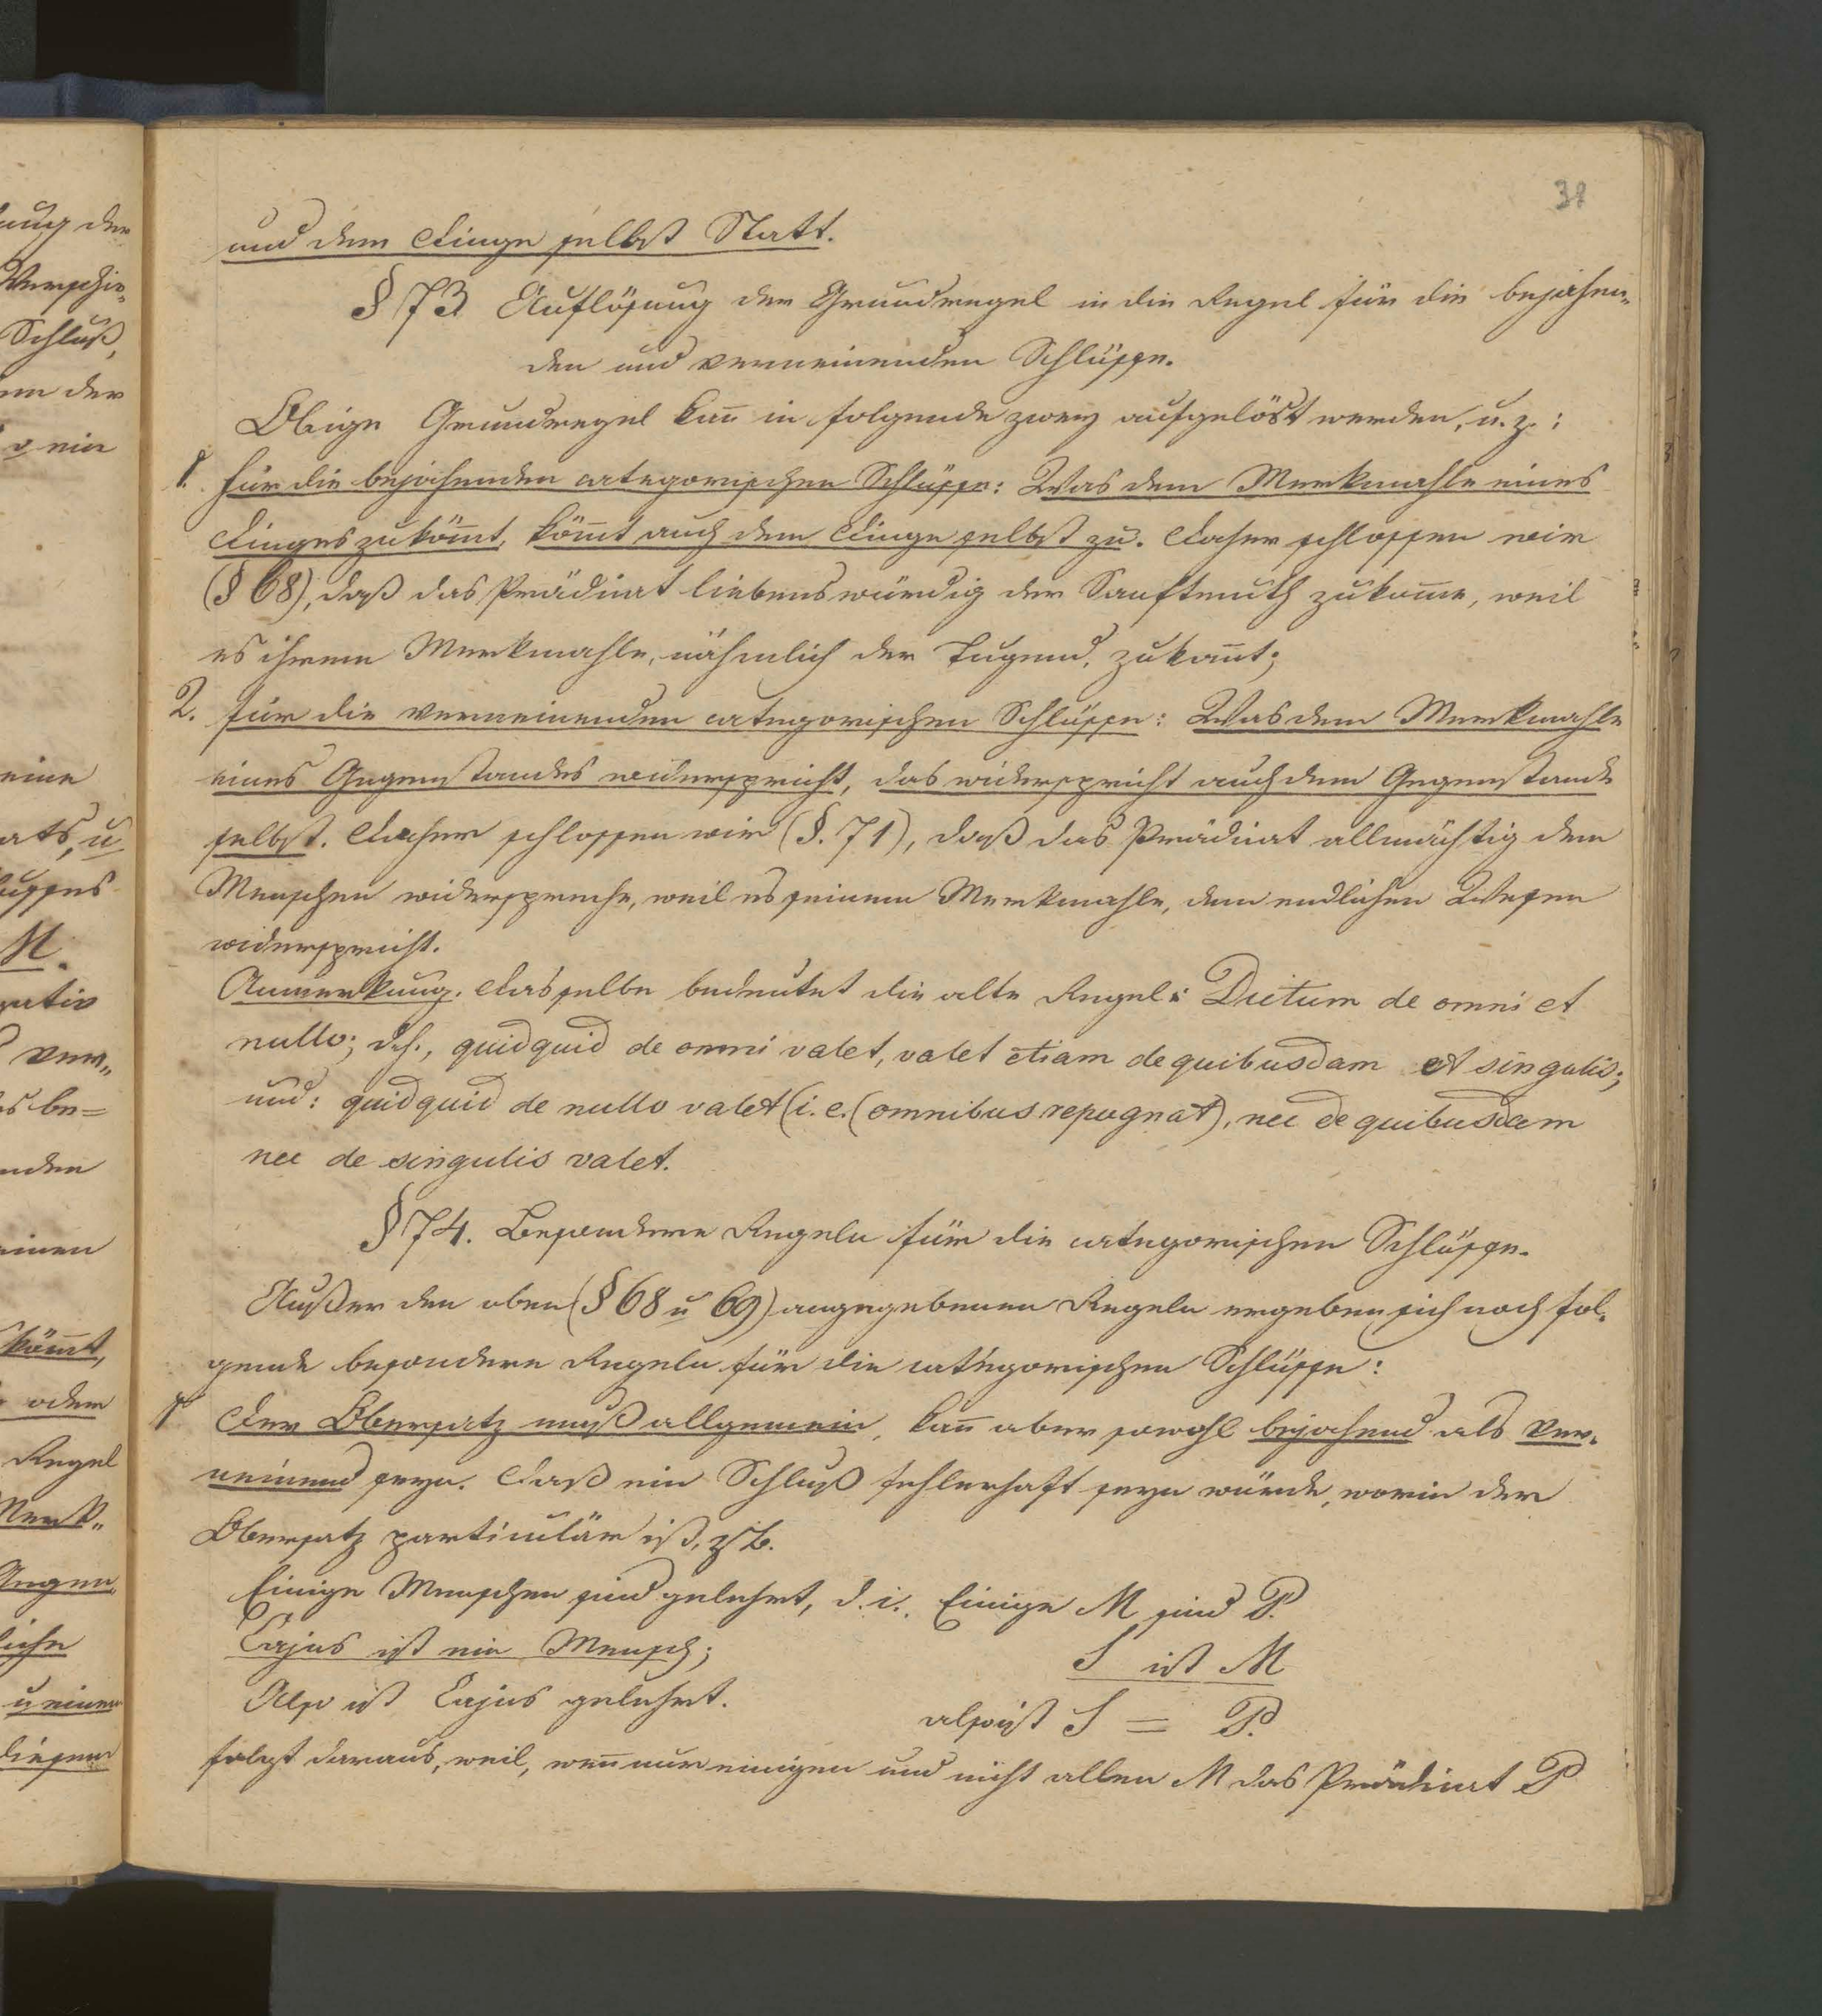 38
und dem Dinge selbst Statt.
§ 73 Auflösung der Grundregel in die Regel für die bejahen„
den und verneinenden Schlüsse.
Obige Grundregel kan̄ in folgende zwey aufgelöst werden, u. z.:
1. Für die bejahenden categorischen Schlüsse: Was dem Merkmahle eines
Dinges zuköm̄t, köm̄t auch dem Dinge selbst zu. Daher schlossen wir
(§ 68), daß das Prädicat liebenswürdig der Sanftmuth zukom̄e, weil
es ihrem Merkmahle, nähmlich der Tugend, zukom̄t;
2. für die verneinenden categorischen Schlüsse: Was dem Merkmahle
eines Gegenstandes widerspricht, das widerspricht auch dem Gegenstande
selbst. Daher schlossen wir (§. 71), daß das Prädicat allmächtig dem
Menschen widerspreche, weil es seinem Merkmahle, dem endlichen Wesen
widerspricht.
Anmerkung. Dasselbe bedeutet die alte Regel: Dictum de omni et
nullo; d.h., quidquid de omni valet, valet etiam de quibusdam et singulis;
und: quidquid de nullo valet (i. e. (omnibus repugnat), nec de quibusdam
nec de singulis valet.
§ 74. Besondere Regeln für die categorischen Schlüsse.
Außer den oben (§ 68 u 69) angegebenen Regeln ergeben sich noch fol„
gende besondere Regeln für die categorischen Schlüsse:
1 Der Obersatz muß allgemein, kan̄ aber sowohl bejahend als ver„
neinend seyn. Daß ein Schluß fehlerhaft seyn würde, worin der
Obersatz particulär ist, z. B.
Einige Menschen sind gelehrt, d. i. Einige M sind P.
Cajus ist ein Mensch; S ist M
Also ist Cajus gelehrt. also ist S = P.
folgt daraus, weil, wen̄ nur einigen und nicht allen M das Prädicat P